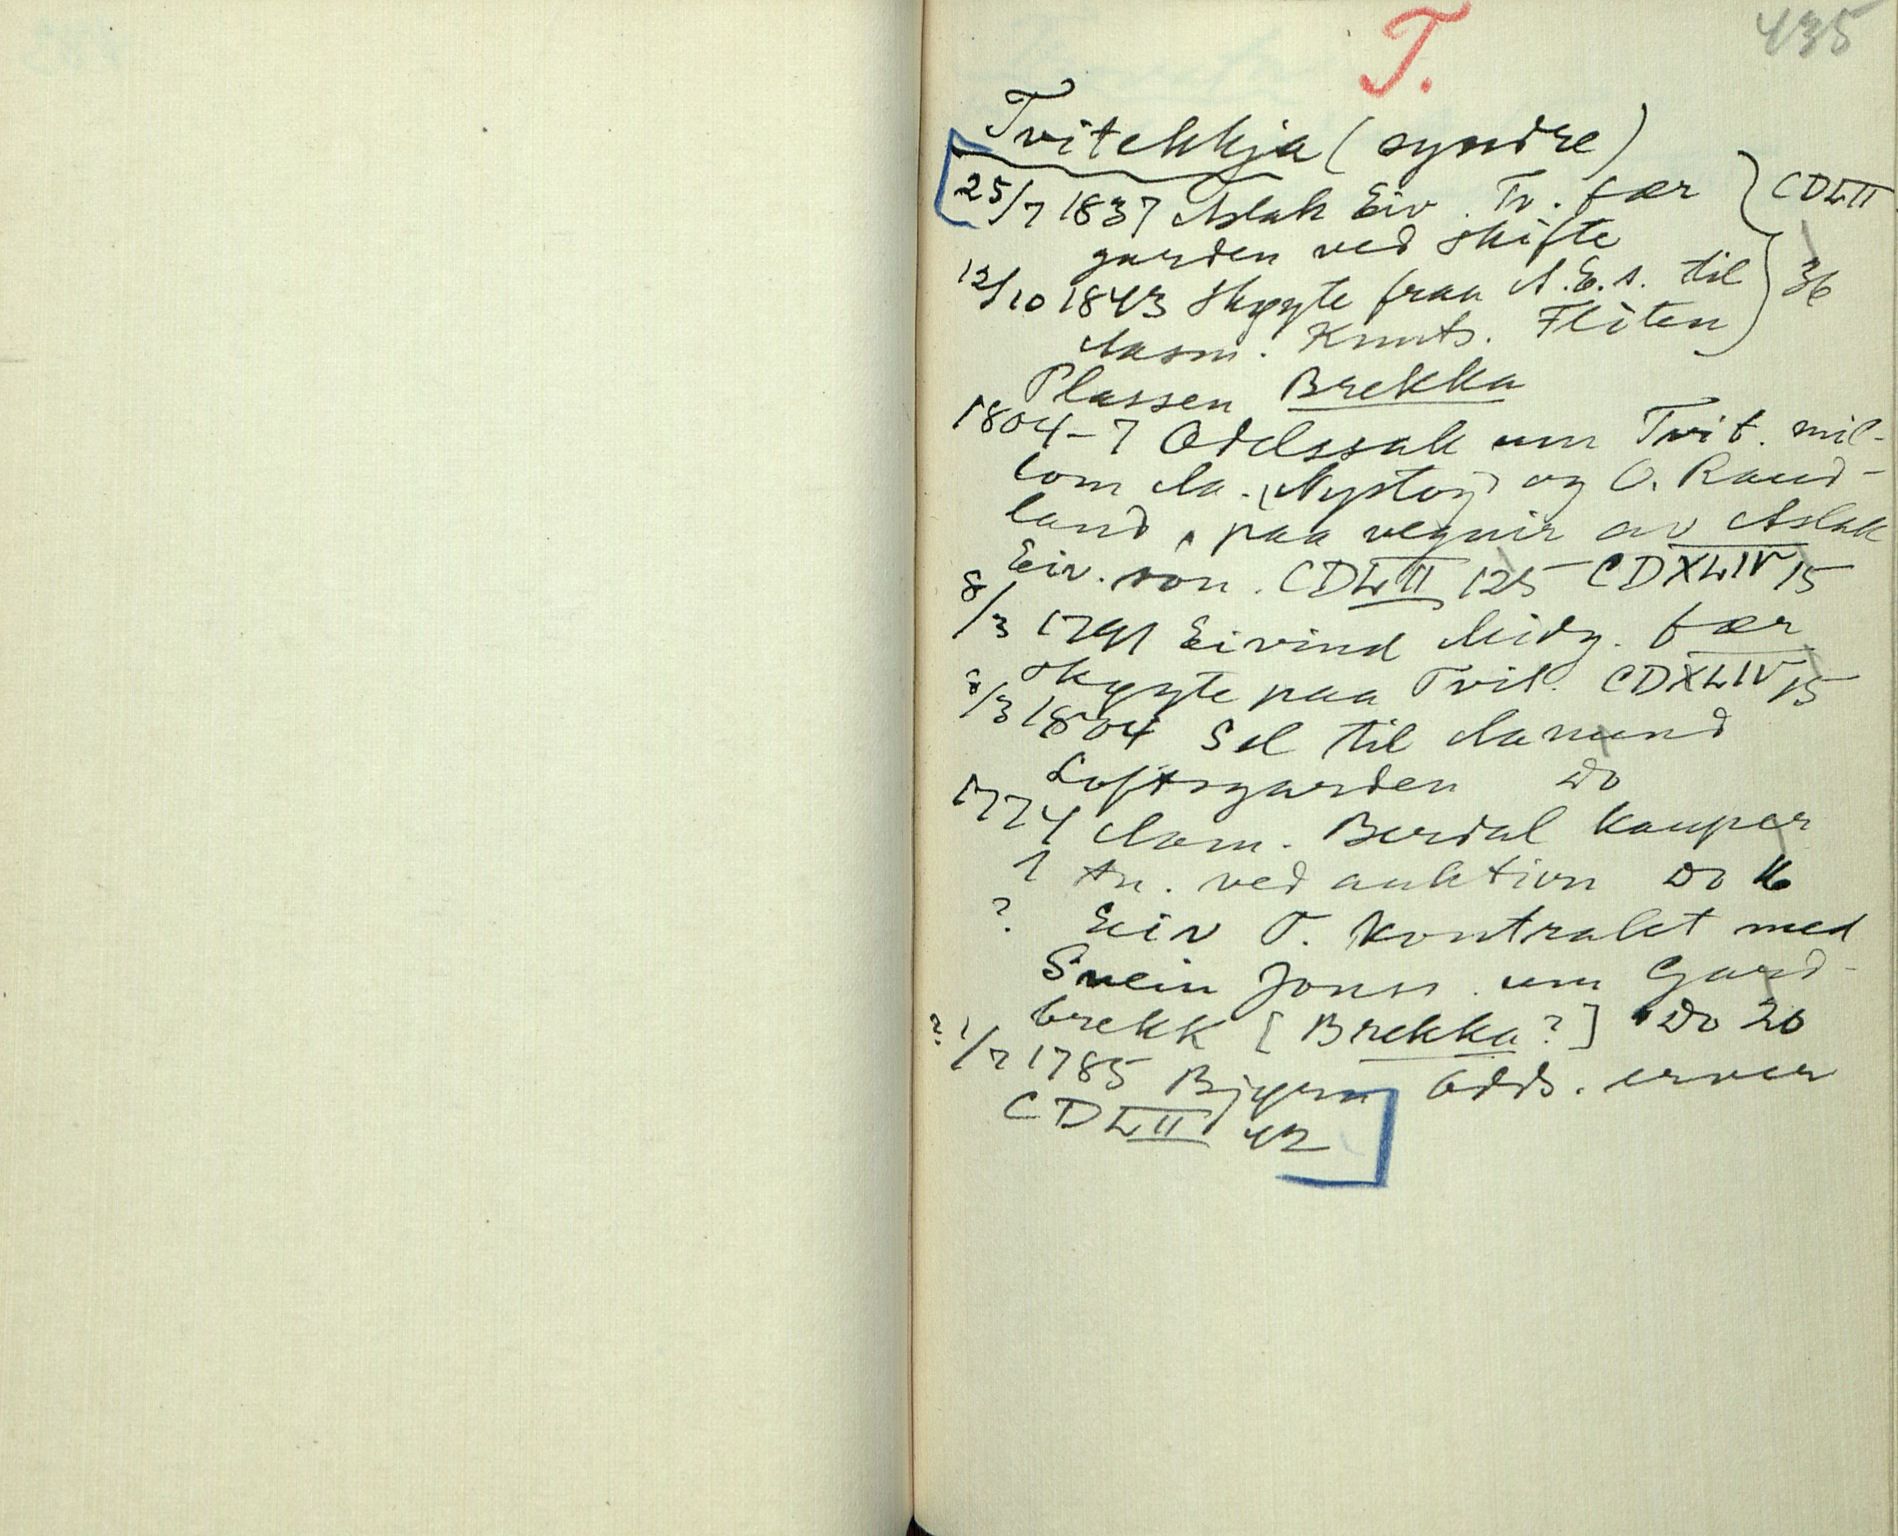 T.
435
Tvitekkja (syndre)
25/7 1837 Aslak Eiv. Tv. fær
garden ved skifte
CDLII
12/10 1843 skøyte fraa A.E.s. til
Aasm. Knuts. Fliten
36
Plassen Brekka
1804-7 Odelssak um Tvit. mil-
lom Aa. (Nystog) og O. Raud-
land, paa vegnir av Aslak
Eiv. son. CDLII 125 CDXLIV 15
8/3 1791 Eivind Midg. fær
skøyte paa Tvit. CDXLIV 15
8/3 1804 Sel til Aamund
Loftsgarden Do
1774 Aasm. Berdal kauper
1 tn. ved auktion Do 16
? Eiv T. kontrakt med
Svein Jonss. um Gard-
brekk [Brekka?] Do 20
? 1/7 1785 Bjørn Odds. erver
CDLII 42